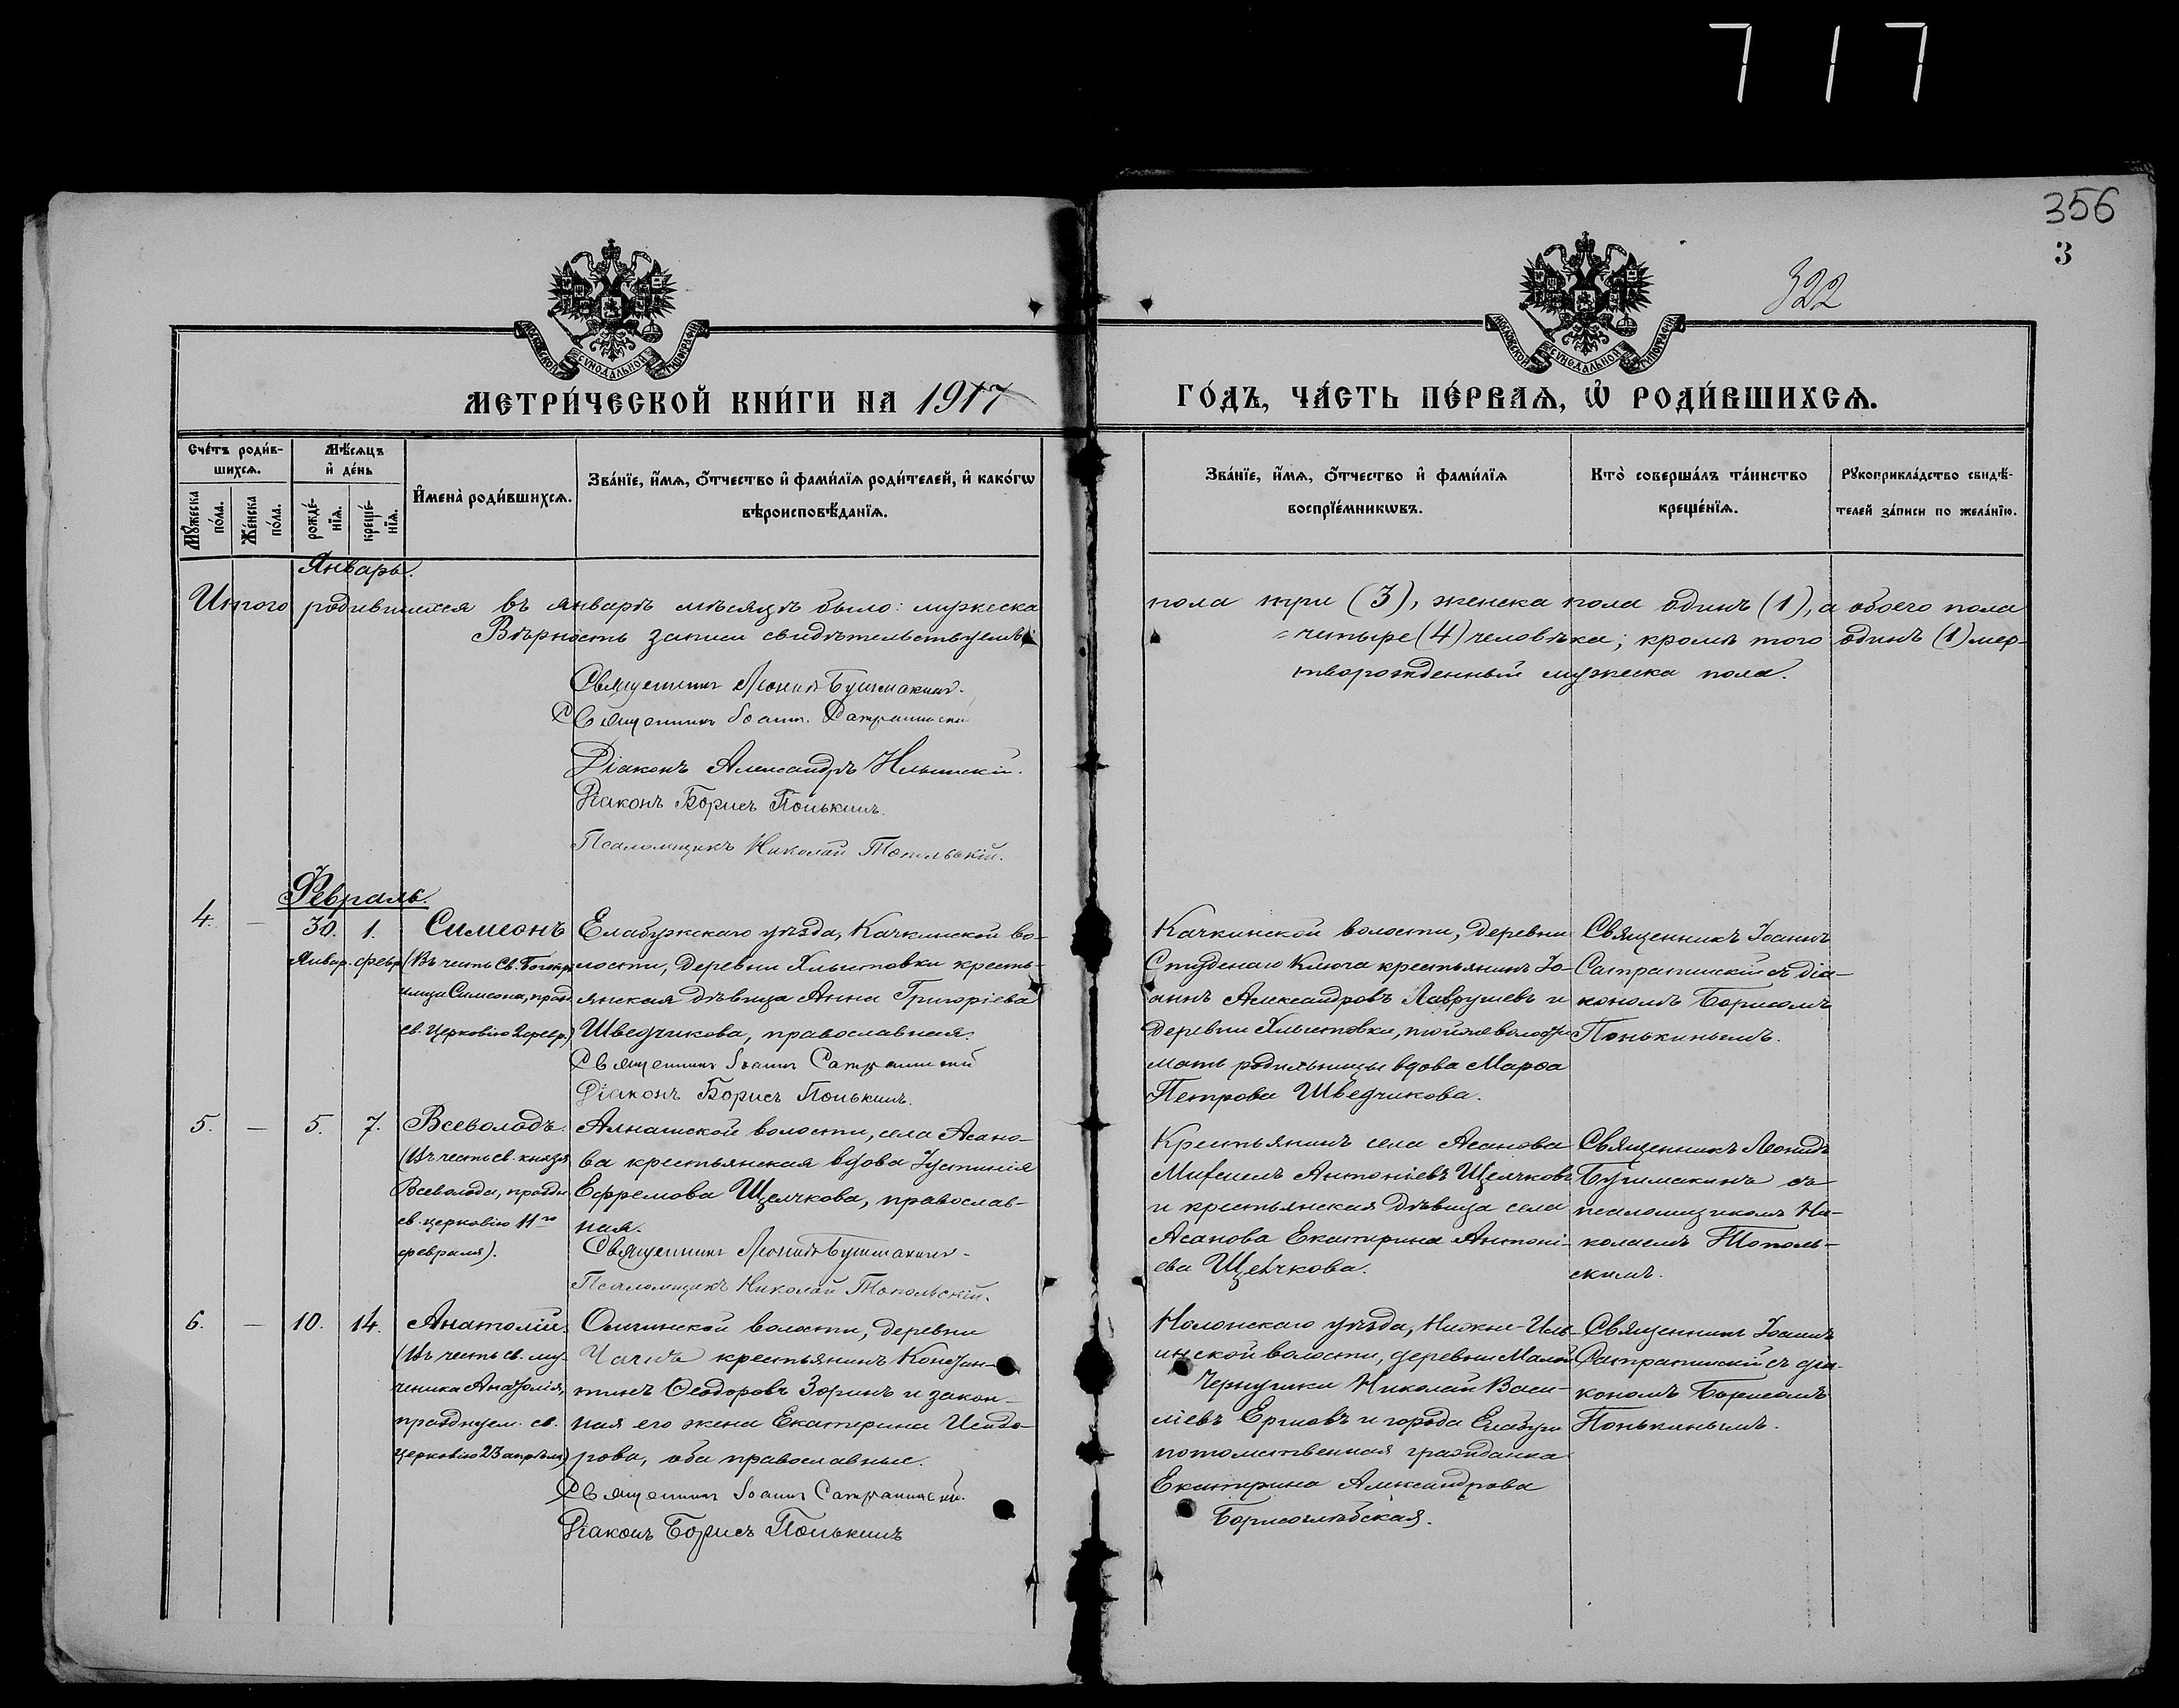 717
356
3
322
МОСКОВСКОЙ СѴНОДАЛЬНОЙ ТИПОГРАФІИ
МОСКОВСКОЙ СѴНОДАЛЬНОЙ ТИПОГРАФІИ
МЕТРИ́ЧЕСКОЙ КНИ́ГИ НА 1917
ГО́ДЪ, ЧА́СТЬ ПЕ́РВАѦ, Ѡ҆ РОДИ́ВШИХСѦ.
Сче́тъ роди́в-
шихсѧ.
Мꙋ́жеска
по́ла.
Же́нска
по́ла.
Мѣ́сѧцъ
и҆ де́нь
рожде́-
нїѧ.
креще́-
нїѧ.
И҆мена̀ роди́вшихсѧ.
Зва́нїе, и҆́мѧ, о҆́тчество и҆ фами́лїѧ роди́телей, и҆ како́гѡ
вѣроисповѣ́данїѧ.
Зва́нїе, и҆́мѧ, о҆́тчество и҆ фами́лїѧ
воспрїе́мникѡвъ.
Кто̀ соверша́лъ та́инство
креще́нїѧ.
Рꙋкоприкла́дство свидѣ́-
телей за́писи по жела́нїю.
Январь.
Итого родившихся въ январѣ мѣсяцѣ было: мужеска
пола три (3), женска пола одинъ (1), а обоего пола
Вѣрность записи свидѣтельствуемъ:
= четыре (4) человѣка; кромѣ того одинъ (1) мер-
творожденный мужеска пола.
Священникъ Леонидъ Бушмакинъ.
Священникъ Іоаннъ Сатрапинскій
Діаконъ Александръ Ильинскій.
Діаконъ Борисъ Понькинъ.
Псаломщикъ Николай Топольскій.
Февраль.
4. — 30. 1. Симеонъ
Январ. февр. (Въ честь Св. Богопр
имца Симеона, празд
св. Церковію 2 февр.)
Елабужскаго уѣзда, Качкинской во-
лости, деревни Хлыстовки кресть-
янская дѣвица Анна Григоріева
Шведчикова, православная.
Священникъ Іоаннъ Сатрапинскій
Діаконъ Борисъ Понькинъ.
Качкинской волости, деревни
Студенаго Ключа крестьянинъ Іо-
аннъ Александровъ Лаврушевъ и
деревни Хлыстовки, той же волости
мать родильницы вдова Марѳа
Петрова Шведчикова.
Священникъ Іоаннъ
Сатрапинскій съ діа-
кономъ Борисомъ
Понькинымъ.
5. — 5. 7. Всеволодъ.
(Въ честь св. князя
Всеволода, праздн
св. церковію 11го
февраля).
Алнашской волости, села Асано-
ва крестьянская вдова Іустинія
Ефремова Щелчкова, православ-
ная.
Священникъ Леонидъ Бушмакинъ.
Псаломщикъ Николай Топольскій.
Крестьянинъ села Асанова
Михаилъ Антоніевъ Щелчковъ
и крестьянская дѣвица села
Асанова Екатерина Антоні-
ева Щелчкова.
Священникъ Леонидъ
Бушмакинъ съ
псаломщикомъ Ни-
колаемъ Тополь-
скимъ.
6. — 10. 14. Анатолій.
(Въ честь св. му-
ченика Анатолія,
празднуем. св.
церковію 23 апрѣля)
волости, деревни
крестьянинъ Констан-
тинъ Ѳеодоровъ Зоринъ и закон-
ная его жена Екатерина Исидо-
рова, оба православные.
Священникъ Іоаннъ Сатрапинскій.
Діаконъ Борисъ Понькинъ
уѣзда, Нижне-
волости, деревни Малой
Чернушки Николай Васи-
ліевъ и города Елабуги
потомственная гражданка
Екатерина Александрова
Борисоглѣбская.
Священникъ Іоаннъ
Сатрапинскій съ діа-
кономъ Борисомъ
Понькинымъ.